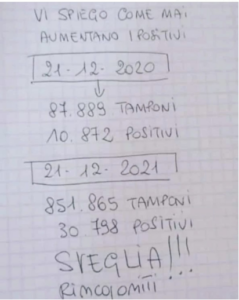 VI SPIEGO COME MAI
AUMENTANO I POSITIVI
21.12.2020
87.889 TAMPONI
10.872 POSITIVI
21.12.2021
851.865 TAMPONI
30.798 POSITIVI
SVEGLIA!!!
RimcoiomiTi